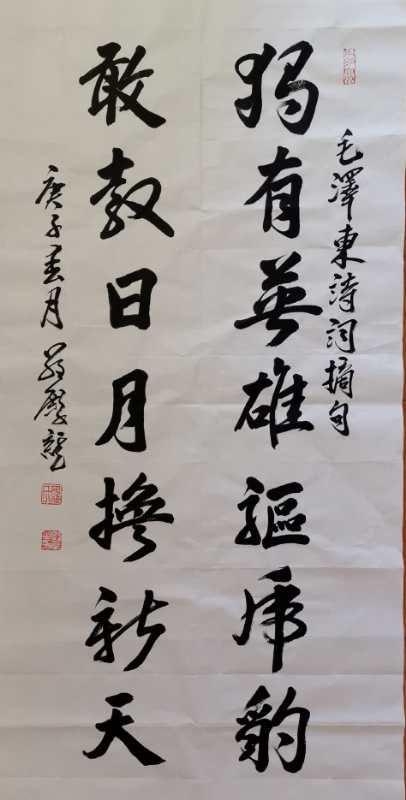 毛澤東詩詞摘句
獨有英雄驅虎豹
敢教日月換新天
庚子春月